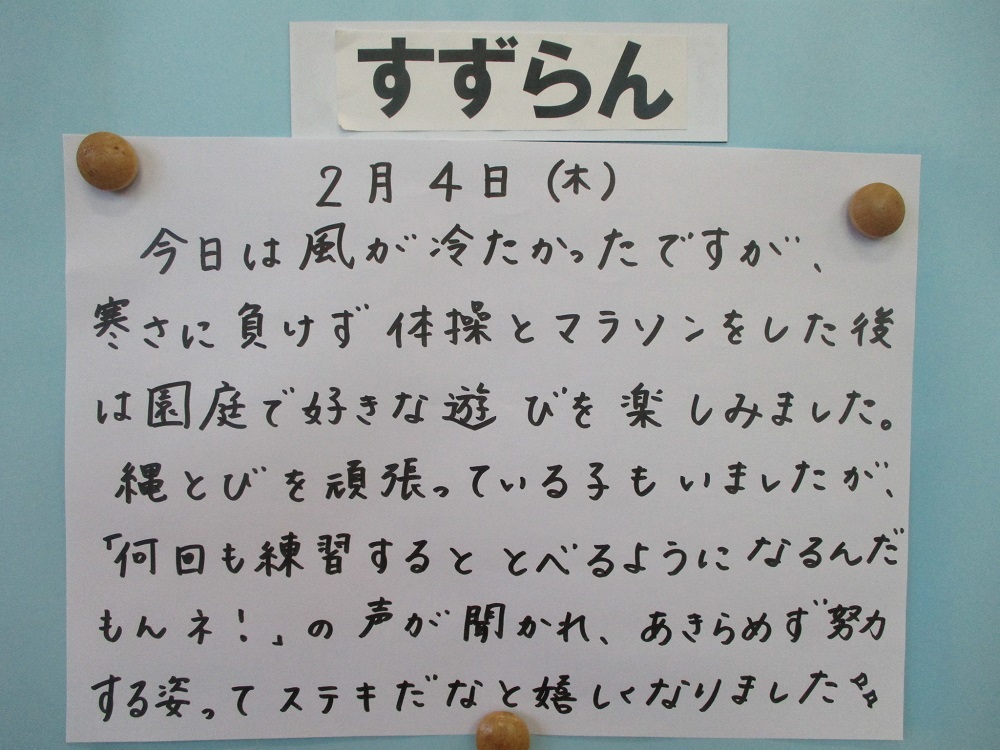 すずらん
2月4日(木)
今日は風が冷たかったですが、
寒さに負けず体操とマラソンをした後
は園庭で好きな遊びを楽しみました。
縄とびを頑張っている子もいましたが、
「何回も練習するととべるようになるんだ
もんネ!」の声が聞かれ、あきらめず努力
する姿ってステキだなと嬉しくなりました